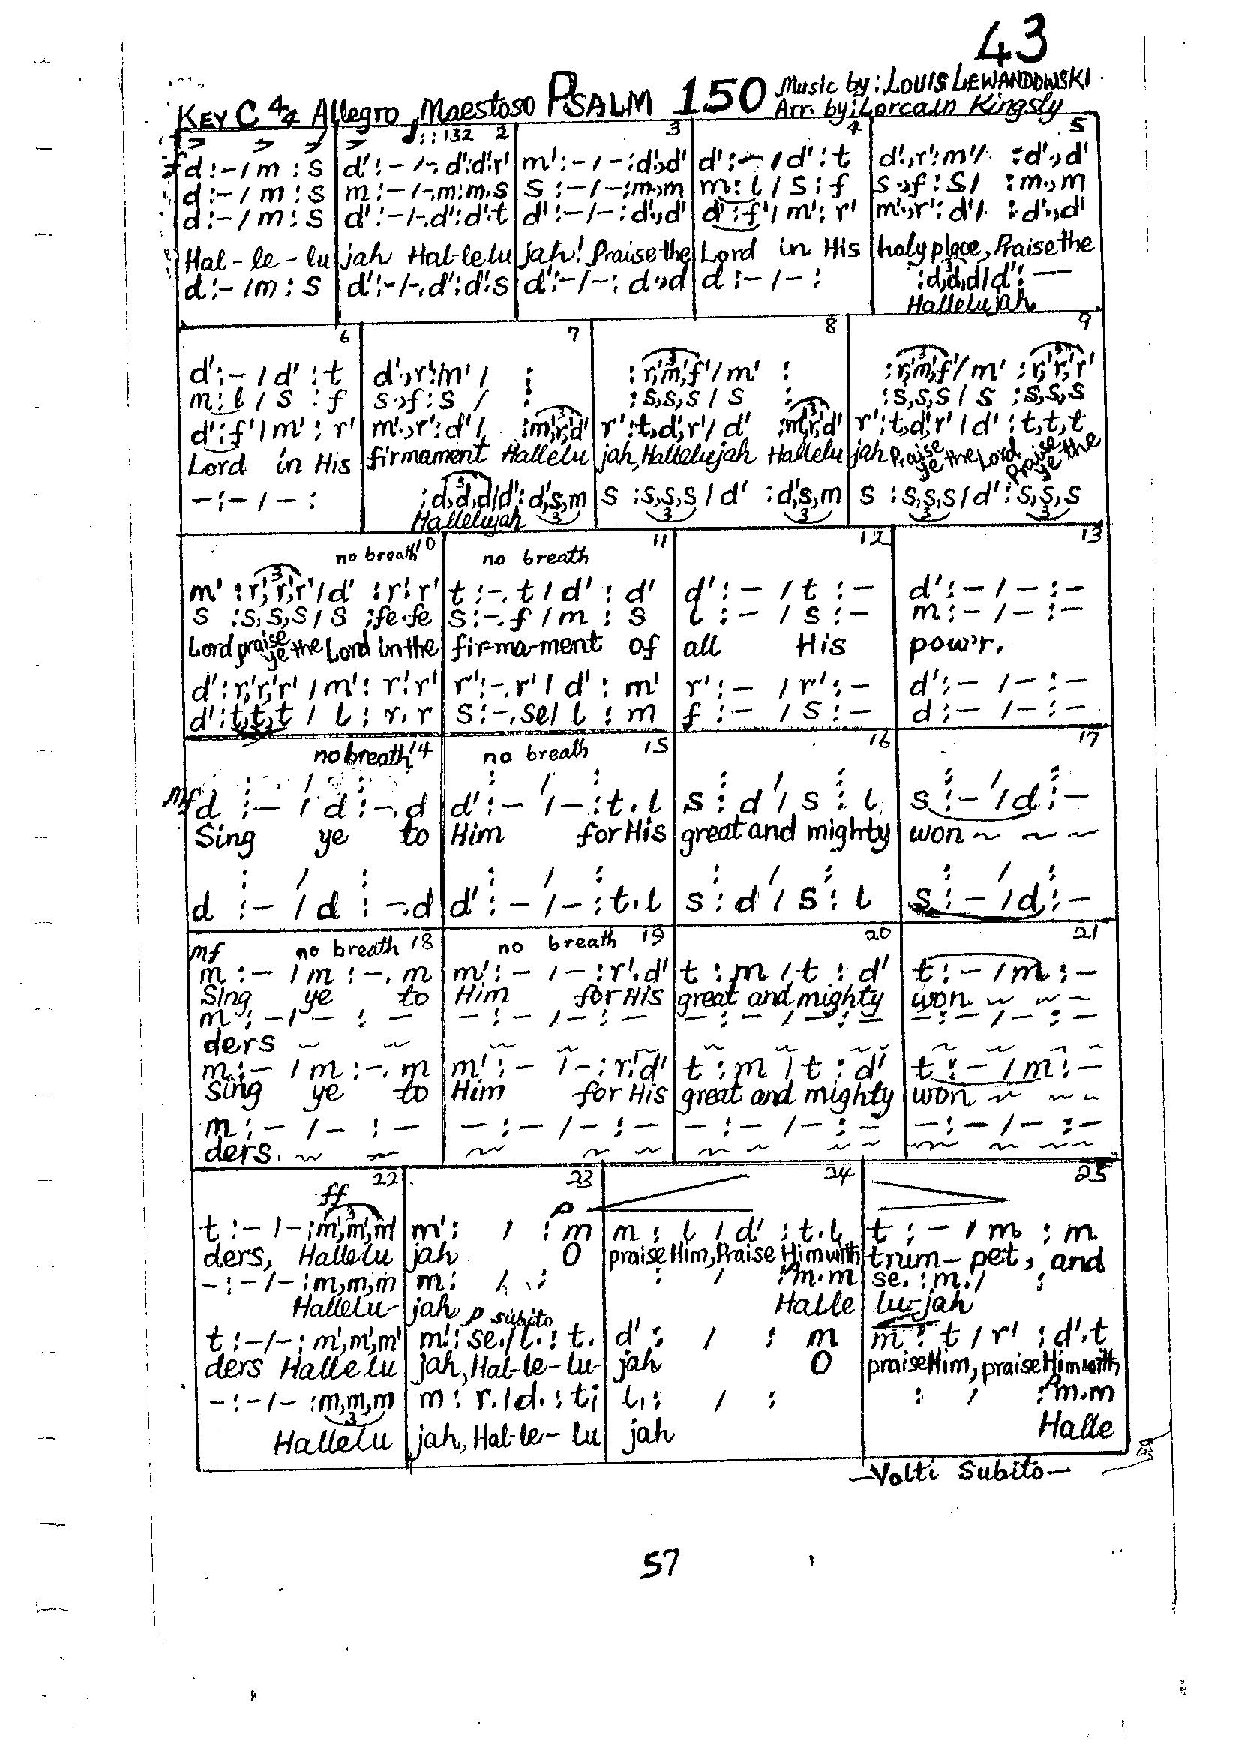 43
KEY C 4/4 Allegro, Maestoso PSALM 150 Music by: LOUIS LEWANDOWSKI
Arr. by: Lorcain Kingsly
♩ :: 132 2 3 4 5
f d :- / m : s | d' :- /-. d':d'.r' | m' :- /- :d'.,d' | d' :- / d' : t | d'.,r':m'/ :d'.,d'
d :- / m : s | m :- /-.m:m.s | s :- /- :m.,m | m : l / s : f | s.,f : s / :m.,m
d :- / m : s | d' :- /-. d':d'.t | d' :- /- : d'.,d' | d' : f' / m' : r' | m'.,r' : d' / : d'.,d'
Hal-le-lu jah Hal-lelu jah! Praise the Lord in His holy place, Praise the
d :- / m : s | d' :- /-. d':d'.s | d' :- /- : d.,d | d :- /- : | :d,d,d/d' : —
Hallelujah
6 7 8 9
d' :- / d' : t | d'.,r':m' / : | :r',m',f'/ m' : | :r',m',f'/ m' :r',r',r'
m : l / s : f | s.,f : s / : | :s,s,s / s : | :s,s,s / s :s,s,s
d' : f' / m' : r' | m'.,r' : d' /, :m',r',d' | r' :t,d',r'/ d' :m',r',d' | r' :t,d',r' / d' :t,t,t
Lord in His firmament Hallelu jah, Hallelujah Hallelu jah Praise ye the Lord Praise ye the
- : - / - : | :d,d,d/d':d',s,m | s :s,s,s / d' :d',s,m | s :s,s,s/d':s,s,s
Hallelujah
no breath 10 no breath 11 12 13
m' :r',r',r'/d' :r'.r' | t :-. t / d' : d' | d' :- / t :- | d' :- / - :-
s :s,s,s / s :fe.fe | s :-. f / m : s | l :- / s :- | m :- / - :-
Lord praise ye the Lord In the firma-ment of all His pow'r.
d' :r',r',r' / m' : r'.r' | r' :-. r' / d' : m' | r' :- / r' :- | d' :- / - :-
d' :t,t,t / l : r.r | s :-. se / l : m | f :- / s :- | d :- / - :-
no breath 14 no breath 15 16 17
: / : | : / : | : / : | : / :
mf d :- / d :-. d | d' :- / - : t.l | s : d / s : l | s :- / d :-
Sing ye to Him for His great and mighty won ~ ~ ~
: / : | : / : | : / : | : / :
d :- / d :-.d | d' :- / - : t.l | s : d / s : l | s :- / d :-
mf no breath 18 no breath 19 20 21
m :- / m :-. m | m' :- / - :r'.d' | t : m / t : d' | t :- / m :-
Sing ye to Him for His great and mighty won ~ ~ ~
m :- / - : - | - : - / - : - | - : - / - : - | - : - / - : -
ders ~ ~ ~ ~ ~ ~ ~ ~ ~ ~ ~ ~
m :- / m :-. m | m' :- / - :r'.d' | t : m / t : d' | t :- / m :-
Sing ye to Him for His great and mighty won ~ ~ ~
m :- / - : - | - : - / - : - | - : - / - : - | - : - / - : -
ders. ~ ~ ~ ~ ~ ~ ~ ~ ~ ~ ~
ff 22 23 p 24 25
t :- / - :m',m',m' | m' : / : m | m : l / d' : t.l | t :- / m : m
ders, Hallelu jah O praise Him, Praise Him with trum-pet, and
- : - / - :m,m,m | m : / : | : / :m.m | se. : m. / :
Hallelu- jah Halle lu-jah
p subito
t :- / - : m',m',m' | m' : se. / l. : t. | d' : / : m | m : t / r' : d'.t
ders Hallelu jah, Hal-le-lu- jah O praise Him, praise Him with
- : - / - :m,m,m | m : r. / d. : t, | l, : / : | : / :m.m
Hallelu jah, Hal-le-lu jah Halle
-Volti Subito-
57